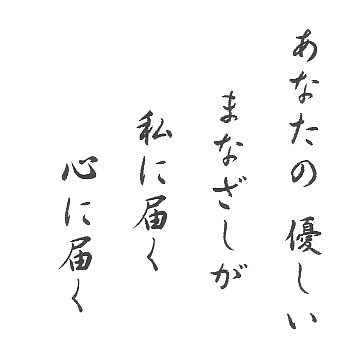 あなたの 優しい
まなざしが
私に届く
心に届く